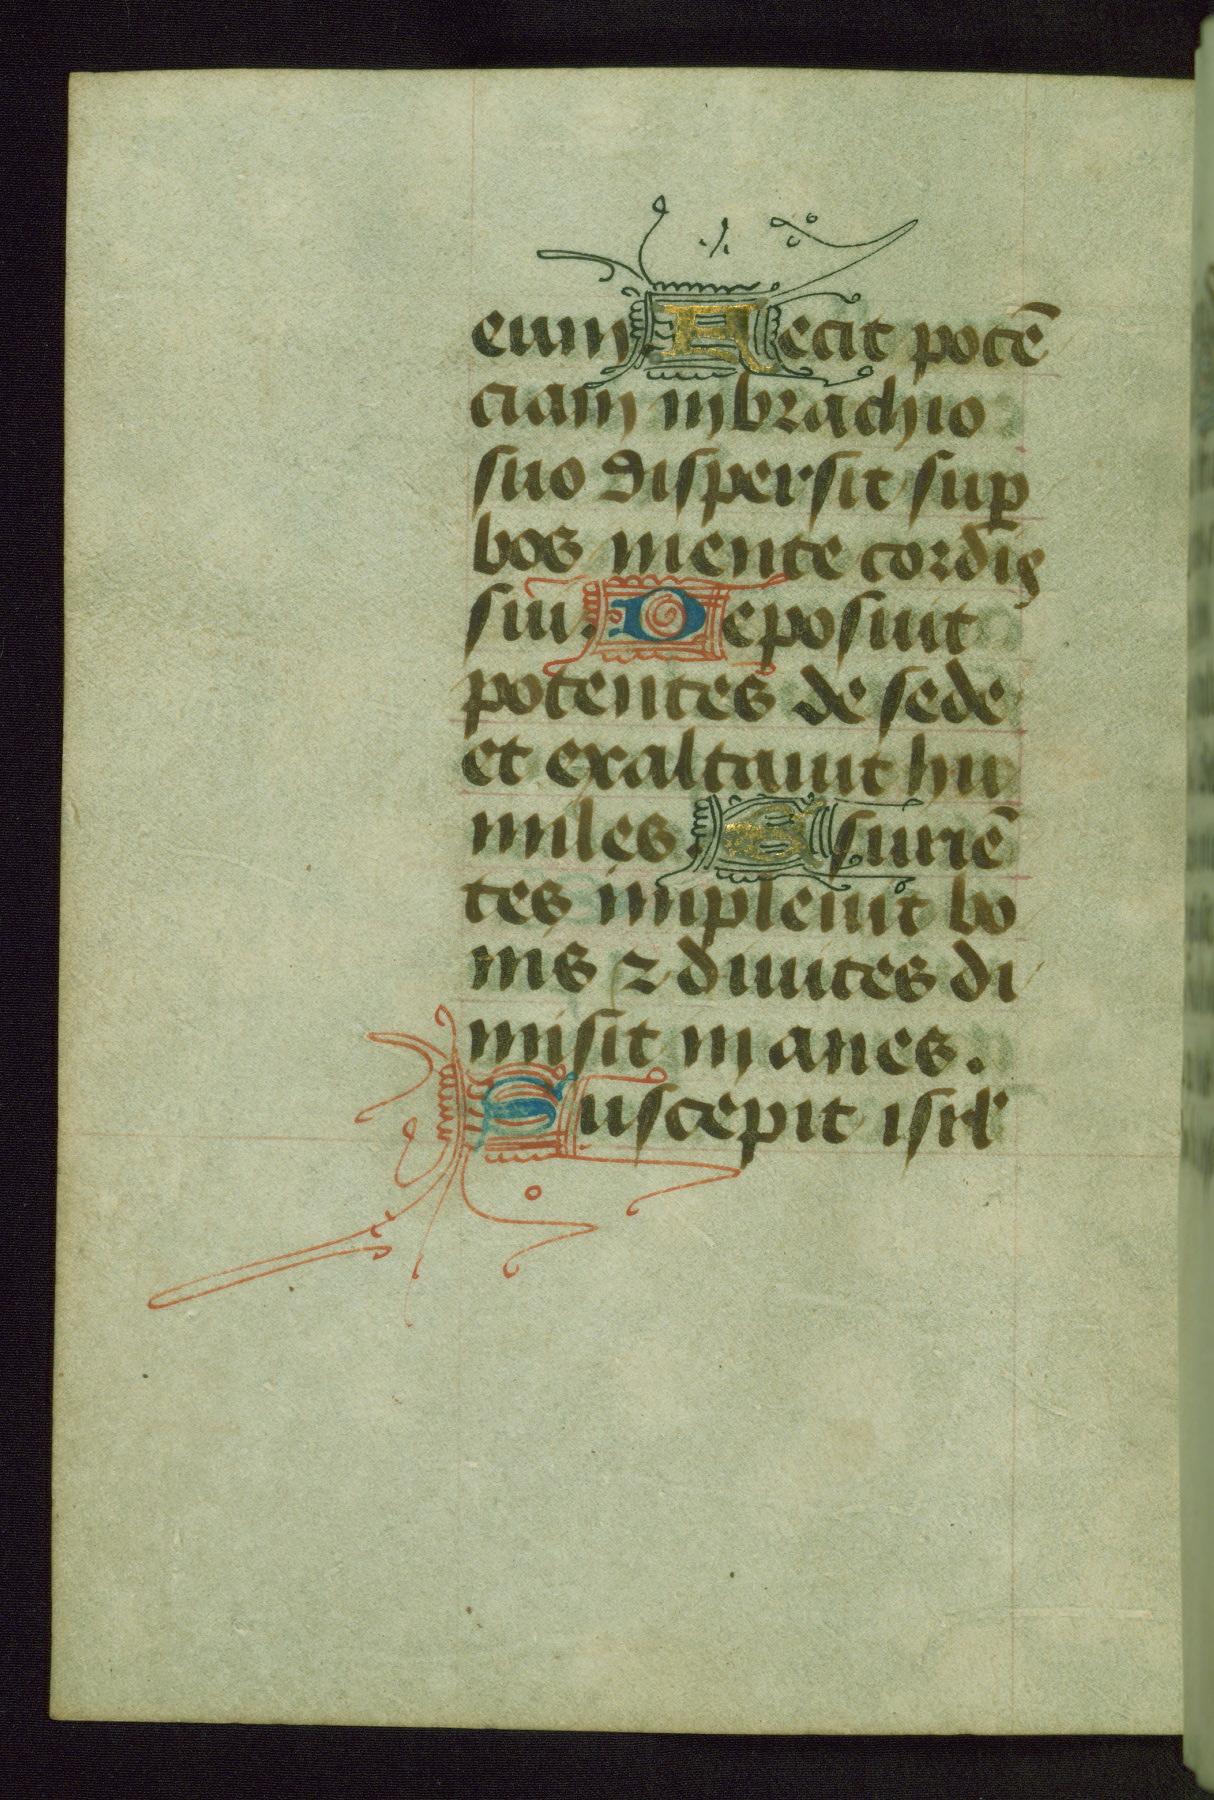 eum Fecit potē
ciam in brachio
suo dispersit sup
bos mente cordis
sui. Deposuit
potentes de sede
et exaltauit hu
miles. Esuriē
tes impleuit bo
nis ⁊ diuites di
misit inanes.
Suscepit isrl'